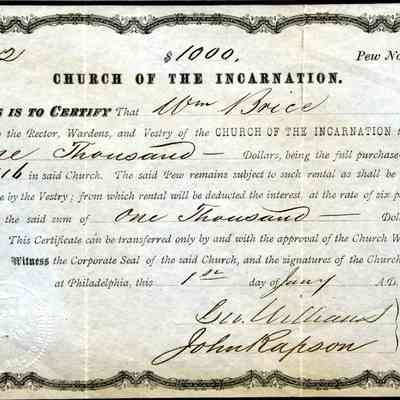 2 $1000. Pew No
CHURCH OF THE INCARNATION.
S IS TO CERTIFY That Wm Brice
o the Rector, Wardens, and Vestry of the CHURCH OF THE INCARNATION
ne Thousand — Dollars, being the full purchase
16 in said Church. The said Pew remains subject to such rental as shall be
e by the Vestry; from which rental will be deducted the interest, at the rate of six p
the said sum of One Thousand — Dol
This Certificate can be transferred only by and with the approval of the Church W
Witness the Corporate Seal of the said Church, and the signatures of the Church
at Philadelphia, this 1st day of Jany A.D.
Geo. Williams
John Rapson